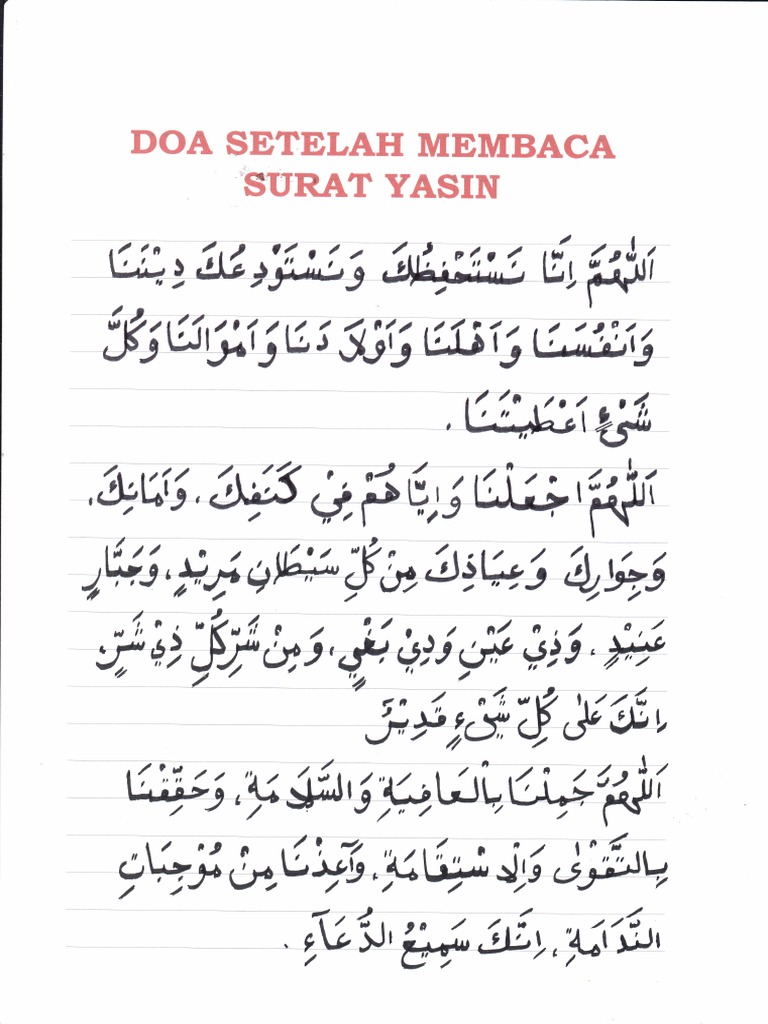 DOA SETELAH MEMBACA
SURAT YASIN
اَللّٰهُمَّ اِنَّا نَسْتَحْفِظُكَ وَنَسْتَوْدِعُكَ دِيْنَنَا
وَاَنْفُسَنَا وَاَهْلَنَا وَاَوْلَادَنَا وَاَمْوَالَنَا وَكُلَّ
شَيْءٍ اَعْطَيْتَنَا .
اَللّٰهُمَّ اجْعَلْنَا وَاِيَّاهُمْ فِيْ كَنَفِكَ ، وَاَمَانِكَ ،
وَجِوَارِكَ وَعِيَاذِكَ مِنْ كُلِّ سَيْطَانٍ مَرِيْدٍ ، وَجَبَّارٍ
عَنِيْدٍ ، وَذِيْ عَيْنٍ وَدِيْ بَغْيٍ ، وَمِنْ شَرِّ كُلِّ ذِيْ شَرٍّ ،
اِنَّكَ عَلٰى كُلِّ شَيْءٍ قَدِيْرٌ
اَللّٰهُمَّ جَمِلْنَا بِالْعَافِيَةِ وَالسَّلَامَةِ ، وَحَقِّقْنَا
بِالتَّقْوٰى وَالْاِسْتِقَامَةِ ، وَاَعِذْنَا مِنْ مُوْجِبَاتِ
النَّدَامَةِ ، اِنَّكَ سَمِيْعُ الدُّعَآءِ .